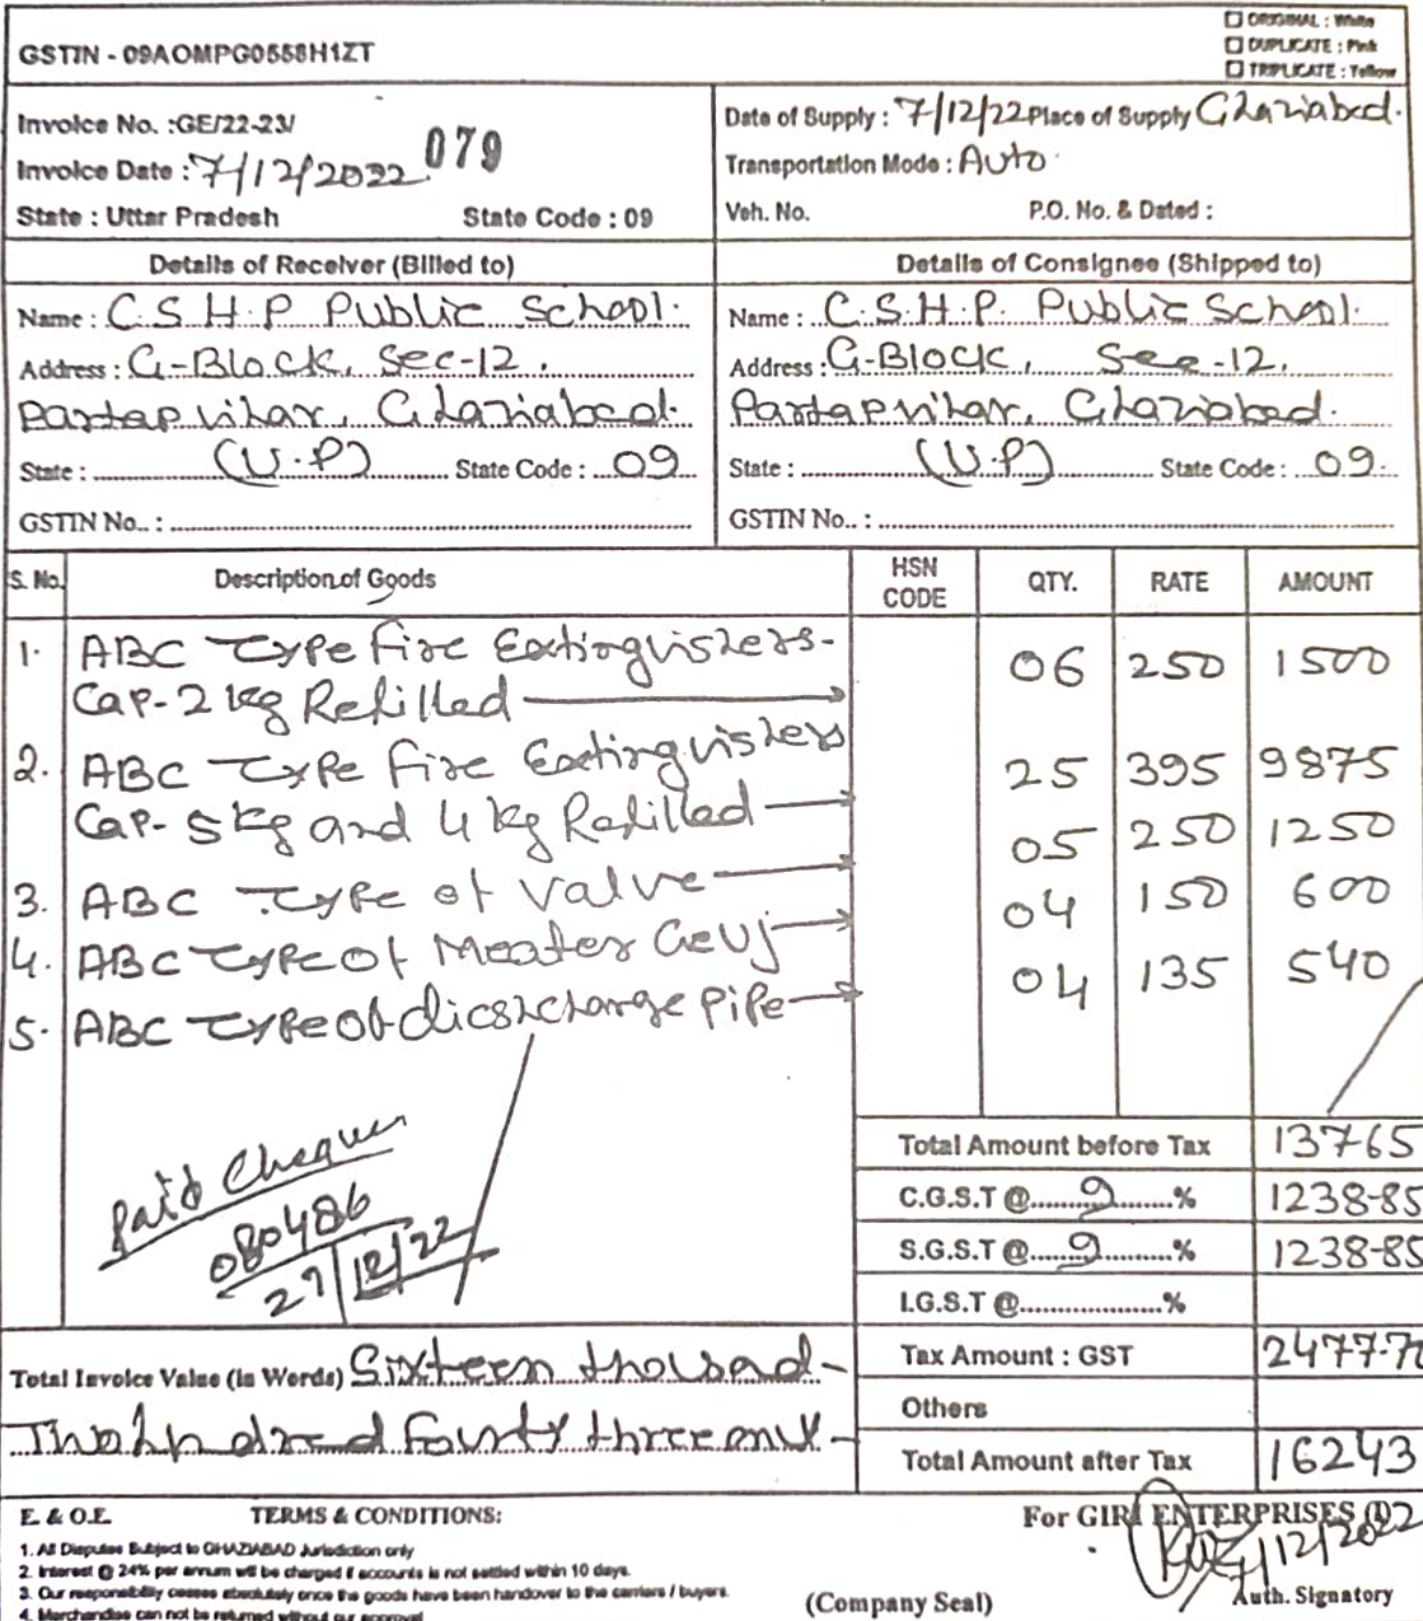 ☐ ORIGINAL : White
☐ DUPLICATE : Pink
☐ TRIPLICATE : Yellow
GSTIN - 09AOMPG0558H1ZT
Invoice No. :GE/22-23/ 079
Invoice Date : 7/12/2022
State : Uttar Pradesh State Code : 09
Date of Supply : 7/12/22 Place of Supply Ghaziabad.
Transportation Mode : Auto
Veh. No. P.O. No. & Dated :
Details of Receiver (Billed to)
Name : C.S.H.P Public School.
Address : G-Block, Sec-12.
Partap vihar, Ghaziabad.
State : (U.P) State Code : 09
GSTIN No.. :
Details of Consignee (Shipped to)
Name : C.S.H.P. Public School.
Address : G-Block, Sec-12.
Partap vihar, Ghaziabad.
State : (U.P) State Code : 09.
GSTIN No.. :
S. No. Description of Goods HSN CODE QTY. RATE AMOUNT
1. ABC Type fire Extinguishers- 06 250 1500
Cap-2 kg Refilled
2. ABC Type fire Extinguishers 25 395 9875
Cap- 5 kg and 4 kg Refilled
3. ABC Type of valve 05 250 1250
4. ABC Type of Meater Geuj 04 150 600
5. ABC Type of dicshcharge pipe 04 135 540
Paid Cheque
080486
27/12/22
Total Amount before Tax 13765
C.G.S.T @ 9 % 1238-85
S.G.S.T @ 9 % 1238-85
I.G.S.T @ %
Tax Amount : GST 2477-70
Others
Total Amount after Tax 16243
Total Invoice Value (in Words) Sixteen thousad-
Two hndred fourty three only-
E. & O.E. TERMS & CONDITIONS:
1. All Disputes Subject to GHAZIABAD Jurisdiction only
2. Interest @ 24% per annum will be charged if accounts is not settled within 10 days.
3. Our responsibility ceases absolutely once the goods have been handover to the carriers / buyers.
4. Merchandise can not be returned without our approval
(Company Seal)
For GIRI ENTERPRISES (I)
7/12/2022
Auth. Signatory